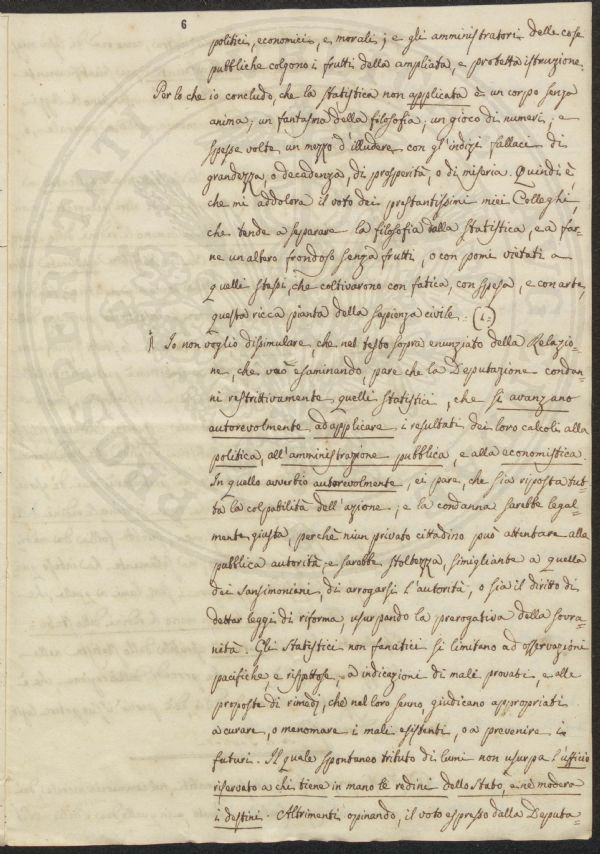 6
politici, economici, e morali; e gli amministratori delle cose
pubbliche colgono i frutti della ampliata, e protetta istruzione.
Per lo che io concludo, che la statistica non applicata è un corpo senza
anima; un fantasma della filosofia, un gioco di numeri, e
spesse volte un mezzo d'illudere con gl'indizi fallaci di
grandezza, o decadenza, di prosperità, o di miseria. Quindi è,
che mi addolora il voto dei prestantissimi miei Colleghi,
che tende a separare la filosofia dalla statistica, e a far-
ne un altero frondoso senza frutti, o con pomi vietati a
quelli stessi, che coltivarono con fatica, con spesa, e con arte,
questa ricca pianta della sapienza civile.
Io non voglio dissimulare, che nel testo sopra enunziato della Relazio-
ne, che vado esaminando, pare che la Deputazione condan-
ni restrittivamente quelli statistici, che si avanzano
autorevolmente ad applicare i resultati dei loro calcoli alla
politica, all'amministrazione pubblica, e alla economistica.
In quello avverbio autorevolmente, ei pare, che sia riposta tut-
ta la colpabilità dell'azione, e la condanna sarebbe legal-
mente giusta, perchè niun privato cittadino può attentare alla
pubblica autorità, e sarebbe stoltezza, simigliante a quella
dei Sansimoniani, di arrogarsi l'autorità, o sia il diritto di
dettar leggi di riforma usurpando la prerogativa della sovra-
nità. Gli Statistici non fanatici si limitano ad osservazioni
pacifiche, e rispettose, a indicazioni di mali provati, e alle
proposte di rimedj, che nel loro senno, giudicano appropriati
a curare, o menomare i mali esistenti, o a prevenire i
futuri. Il quale spontaneo tributo di lumi non usurpa l'ufficio
riservato a chi tiene in mano le redini dello Stato, e nè modera
i destini. Altrimenti opinando, il voto espresso dalla Deputa-